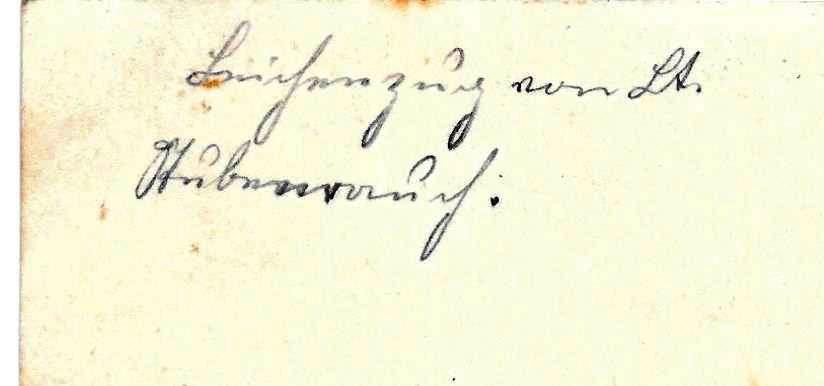 Leichenzug von Lt.
Stubenrauch.